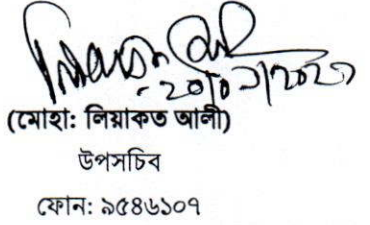 (মোহা: লিয়াকত আলী)
উপসচিব
ফোন: ৯৫৪৬১০৭